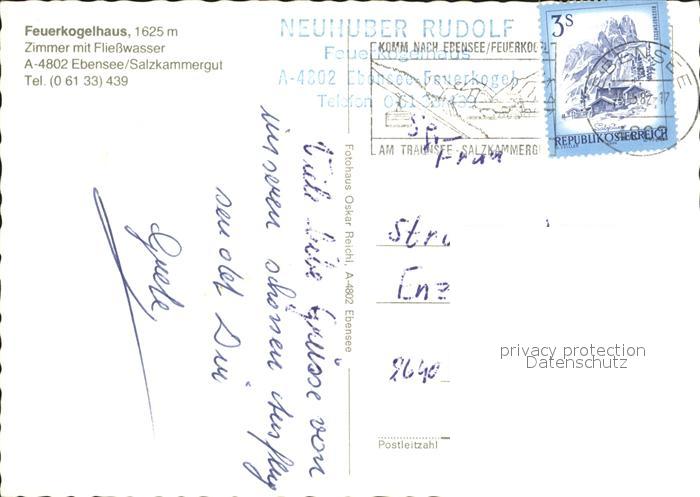 Feuerkogelhaus, 1625 m
Zimmer mit Fließwasser
A-4802 Ebensee/Salzkammergut
Tel. (0 61 33) 439
NEUHUBER RUDOLF
Feuerkogelhaus
A-4802 Ebensee-Feuerkogel
Telefon 0 61 33/439
KOMM NACH EBENSEE/FEUERKOGEL
AM TRAUNSEE-SALZKAMMERGUT
3S
REPUBLIK ÖSTERREICH
EBENSEE
Viele liebe Grüsse von
unseren schönen Ausflug
sendet Dir
Grete
Fotohaus Oskar Reichl, A-4802 Ebensee
Frau
Str
Enz
Postleitzahl
privacy protection
Datenschutz